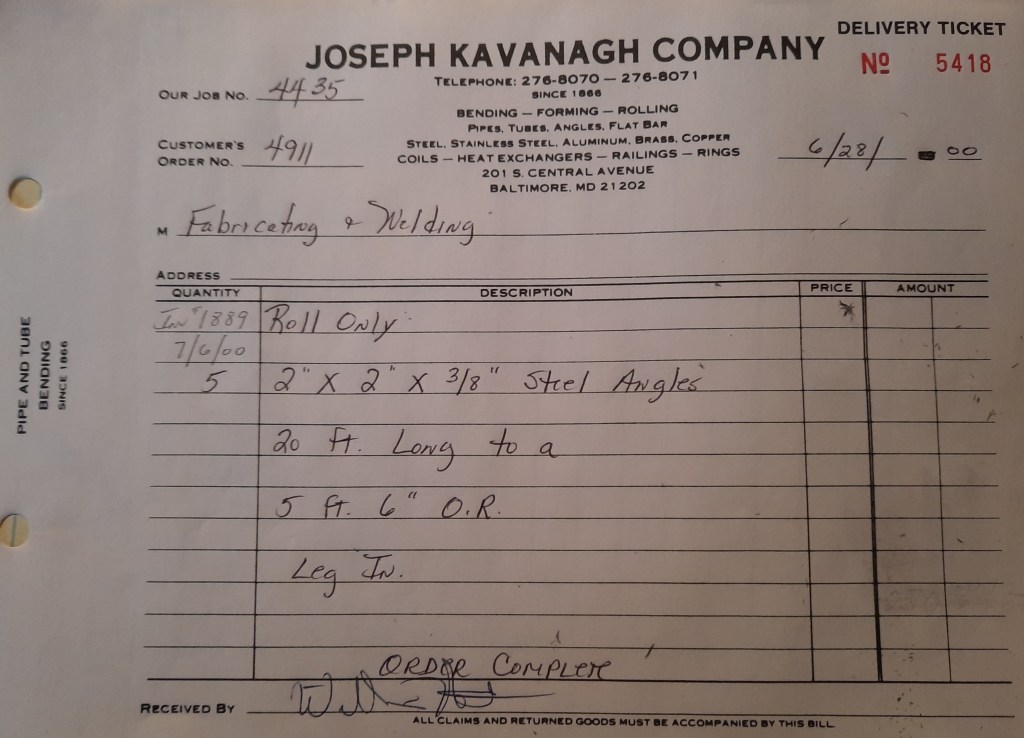 DELIVERY TICKET
JOSEPH KAVANAGH COMPANY
Nº 5418
TELEPHONE: 276-8070 — 276-8071
SINCE 1866
OUR JOB NO. 4435
BENDING — FORMING — ROLLING
PIPES, TUBES, ANGLES, FLAT BAR
CUSTOMER'S ORDER NO. 4911
STEEL, STAINLESS STEEL, ALUMINUM, BRASS, COPPER
COILS — HEAT EXCHANGERS — RAILINGS — RINGS
6/28/ 00
201 S. CENTRAL AVENUE
BALTIMORE, MD 21202
M Fabricating & Welding
ADDRESS
QUANTITY DESCRIPTION PRICE AMOUNT
Inv #1889 Roll Only
7/6/00
5 2" X 2" X 3/8" Steel Angles
20 ft. Long to a
5 ft. 6" O.R.
Leg In.
ORDER COMPLETE
RECEIVED BY
ALL CLAIMS AND RETURNED GOODS MUST BE ACCOMPANIED BY THIS BILL
PIPE AND TUBE
BENDING
SINCE 1866